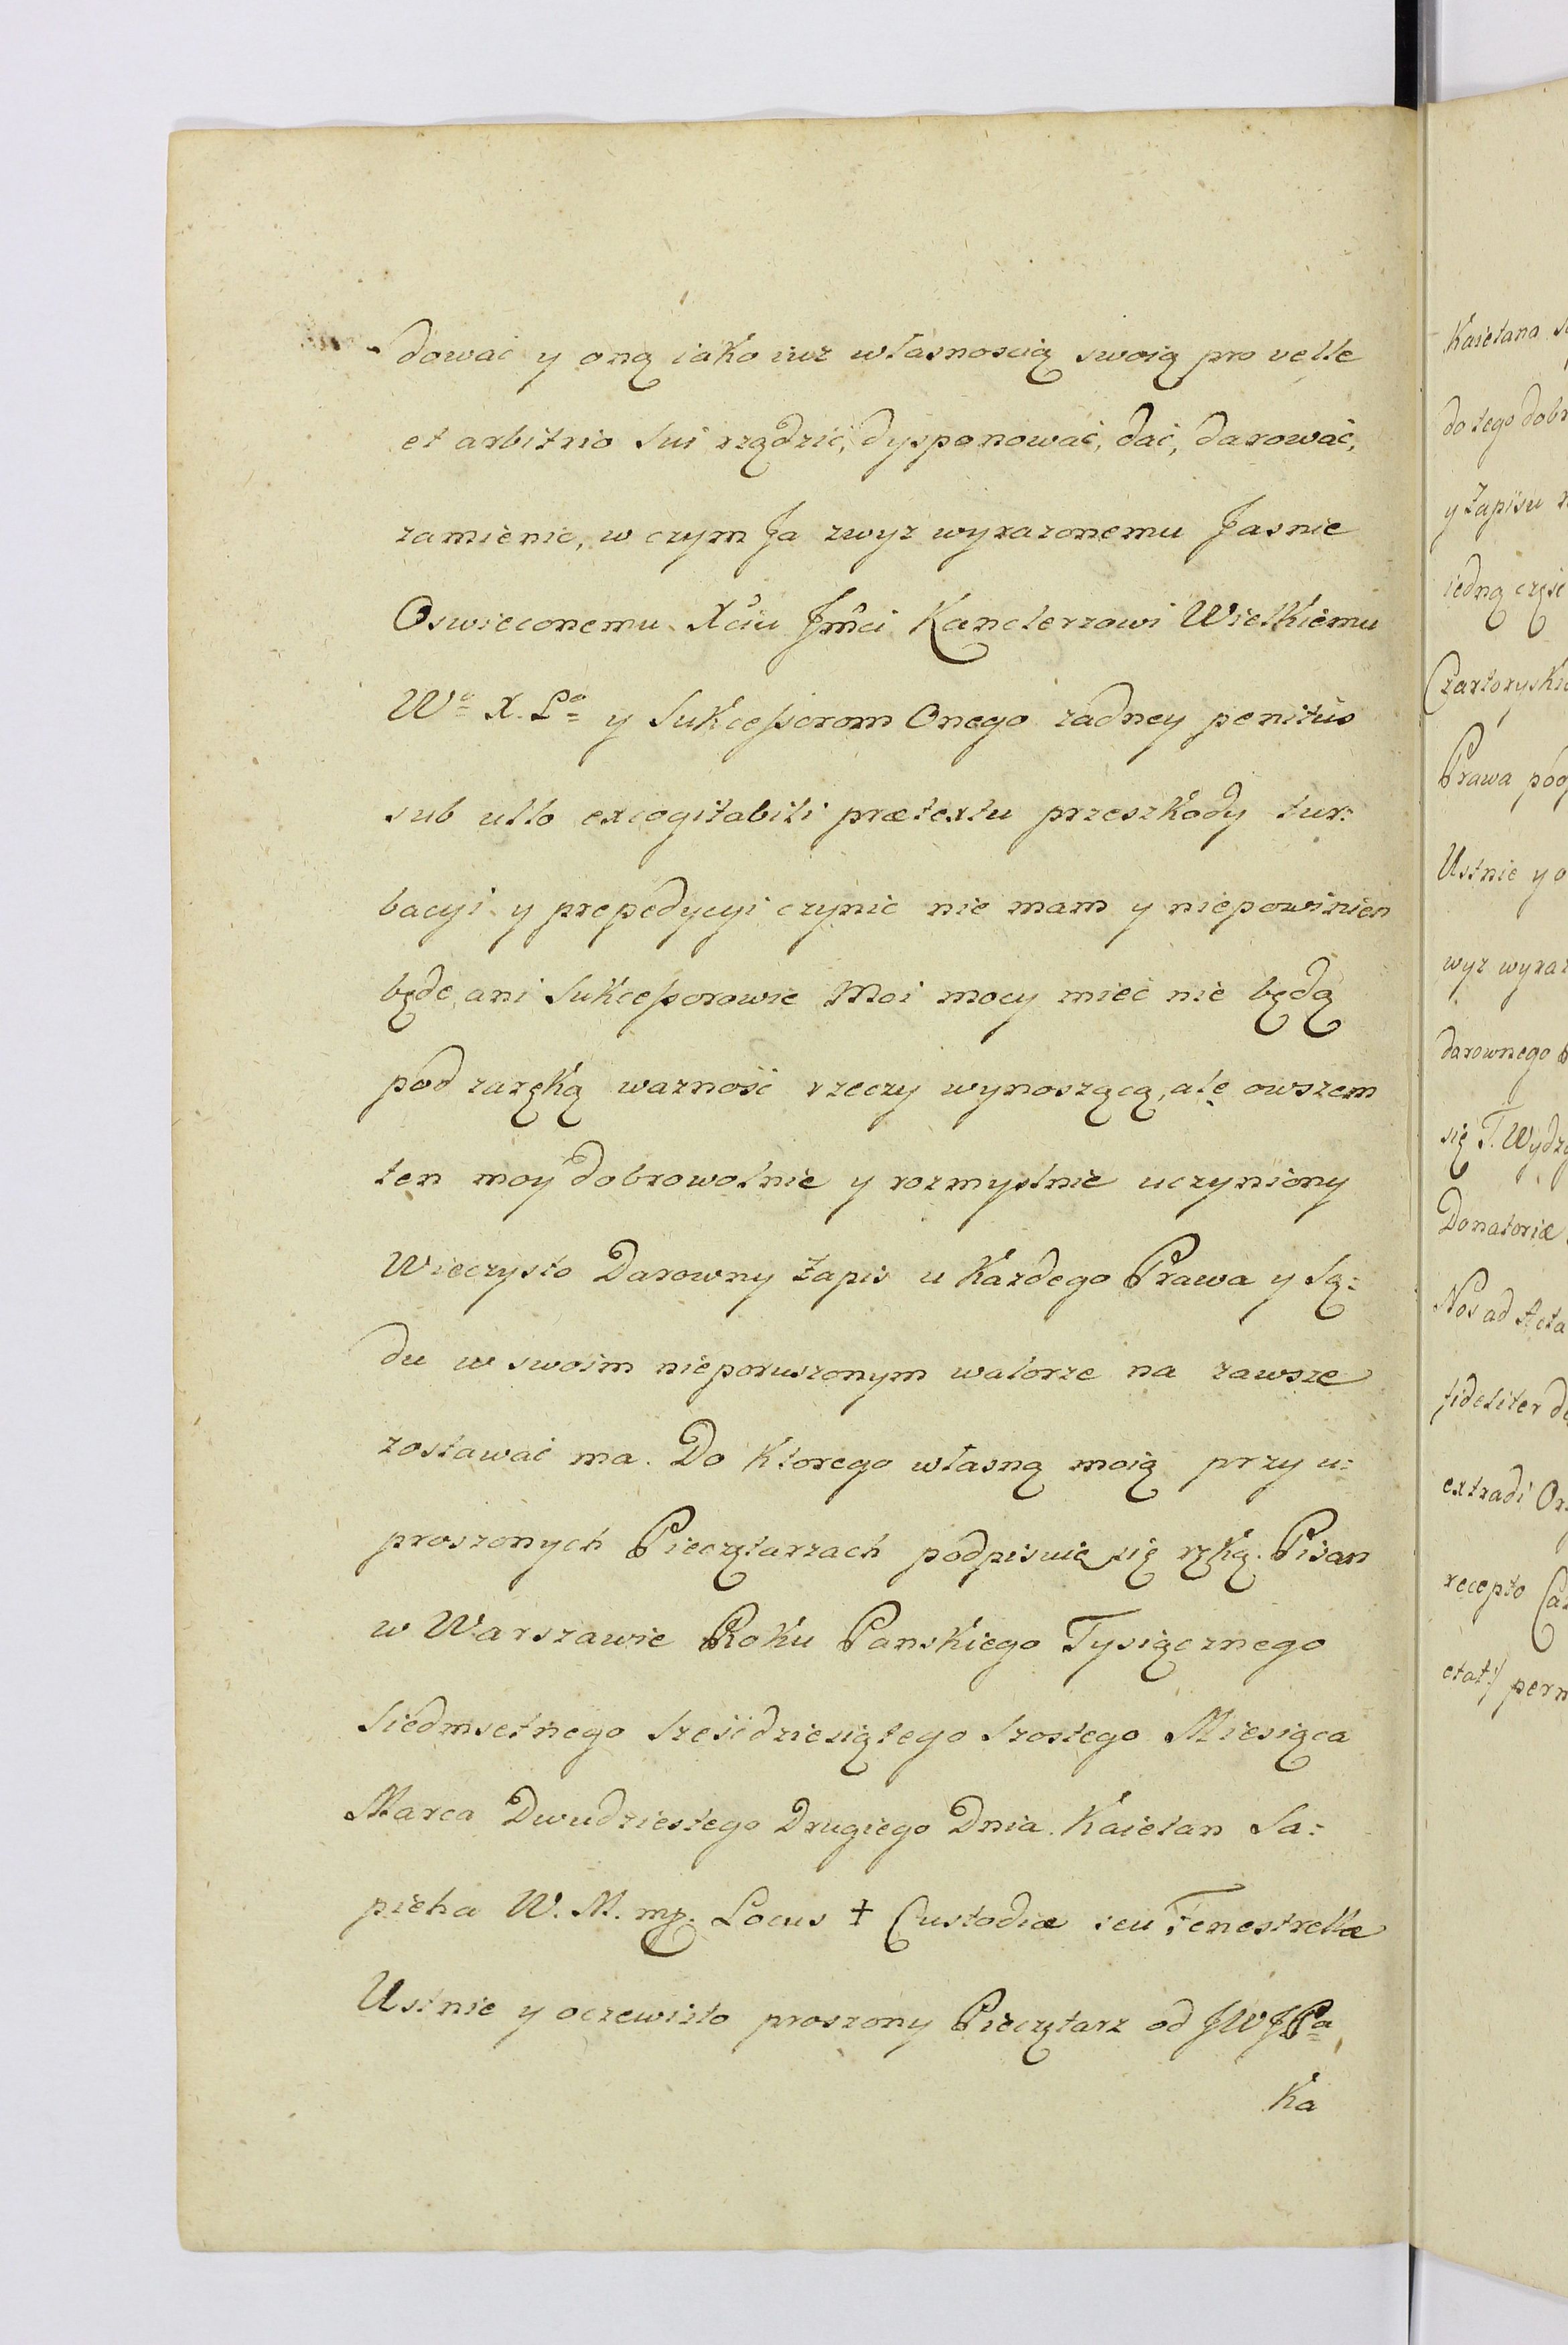 dować y oną iako iuz własnoscią swoią pro velle
et arbitrio sui rządzić, dysponować, dać, darować,
zamienic, w czym Ja zwyz wyrazonemu Jasnie
Oswieconemu Xciu Jmci Kanclerzowi Wielkiemu
Wo X. Lo y Sukcessorom Onego zadney penitus
sub ullo excogitabili prætextu przeszkody tur:
bacyi y prepedycyi czynic nie mam y niepowinien
będe, ani Sukcessorowie Moi mocy mieć nie będą
pod zaręką wazność rzeczy wynoszącą, ale owszem
ten moy dobrowolnie y rozmyslnie uczyniony
Wieczysto Darowny Zapis u Kazdego Prawa y Są:
du w swoim nieporuszonym walorze na zawsze
zostawać ma. Do Ktorego własną moią przy u:
proszonych Pieczętarzach podpisuię się ręką. Pisan
w Warszawie Roku Panskiego Tysiącznego
Siedmsetnego Sześćdziesiątego Szostego Miesiąca
Marca Dwudziestego Drugiego Dnia. Kaietan Sa:
pieha W. M. mp. Locus + Custodiæ seu Fenestrellæ
Ustnie y oczewisto proszony Pieczętarz od JWJPa
Ka
Kaietana
do tego
y Zapisu
iedną częsc
Prawa
Ustnie y
darownego
się T.
Donatoriæ
Nos ad Acta
fideliter
extradi
recepto